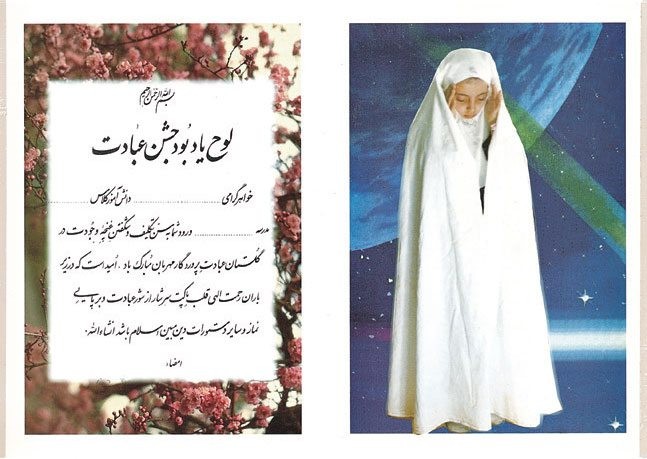 بسم الله الرحمن الرحیم
لوح یادبود جشن عبادت
خواهر گرامی ............ دانش آموز کلاس
مدرسه ............ ورود شما به سن تکلیف و شکفتن غنچهٔ وجودت در
گلستان عبادت پروردگار مهربان مبارک باد، امید است که در زیر
باران رحمت الهی قلب پاکت سرشار از شور عبادت و برپایی
نماز و سایر دستورات دین مبین اسلام باشد انشاءالله.
امضاء